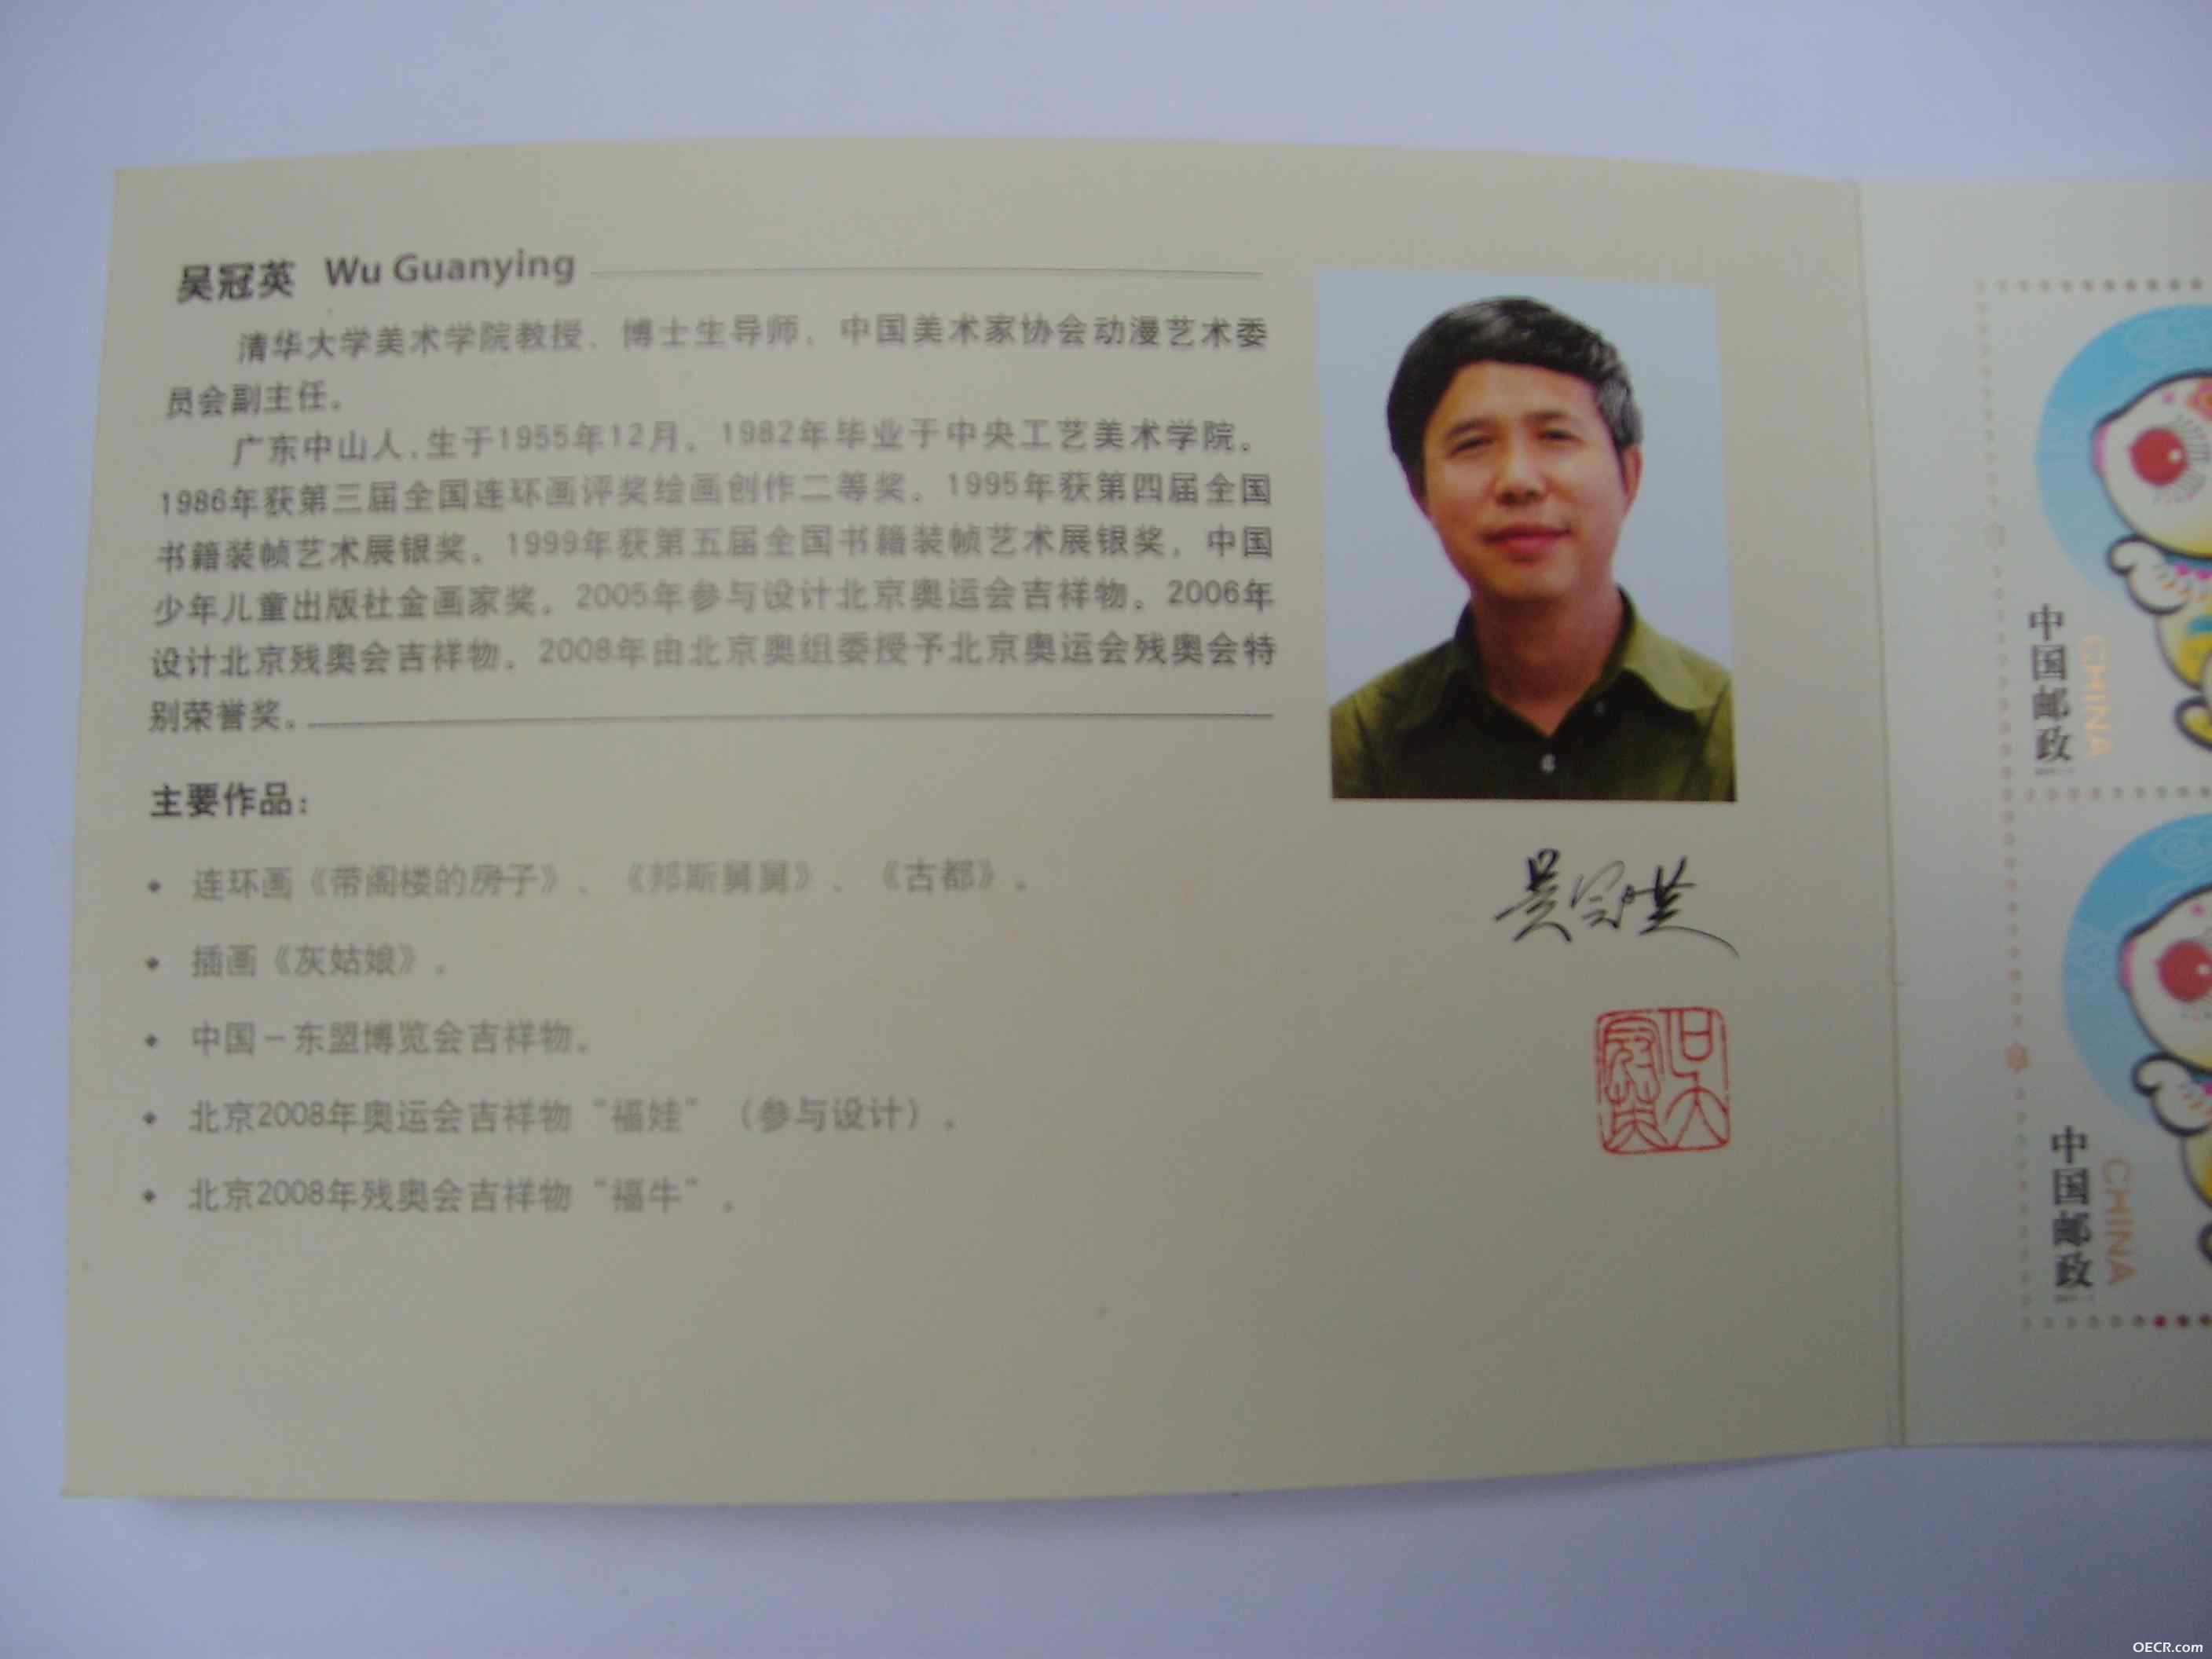 吴冠英 Wu Guanying
清华大学美术学院教授、博士生导师，中国美术家协会动漫艺术委
员会副主任。
广东中山人，生于1955年12月。1982年毕业于中央工艺美术学院。
1986年获第三届全国连环画评奖绘画创作二等奖。1995年获第四届全国
书籍装帧艺术展银奖。1999年获第五届全国书籍装帧艺术展银奖，中国
少年儿童出版社金画家奖。2005年参与设计北京奥运会吉祥物。2006年
设计北京残奥会吉祥物。2008年由北京奥组委授予北京奥运会残奥会特
别荣誉奖。
主要作品：
• 连环画《带阁楼的房子》、《邦斯舅舅》、《古都》。
• 插画《灰姑娘》。
• 中国－东盟博览会吉祥物。
• 北京2008年奥运会吉祥物“福娃”（参与设计）。
• 北京2008年残奥会吉祥物“福牛”。
吴冠英
吴冠英
中国邮政
CHINA
中国邮政
CHINA
OECR.com